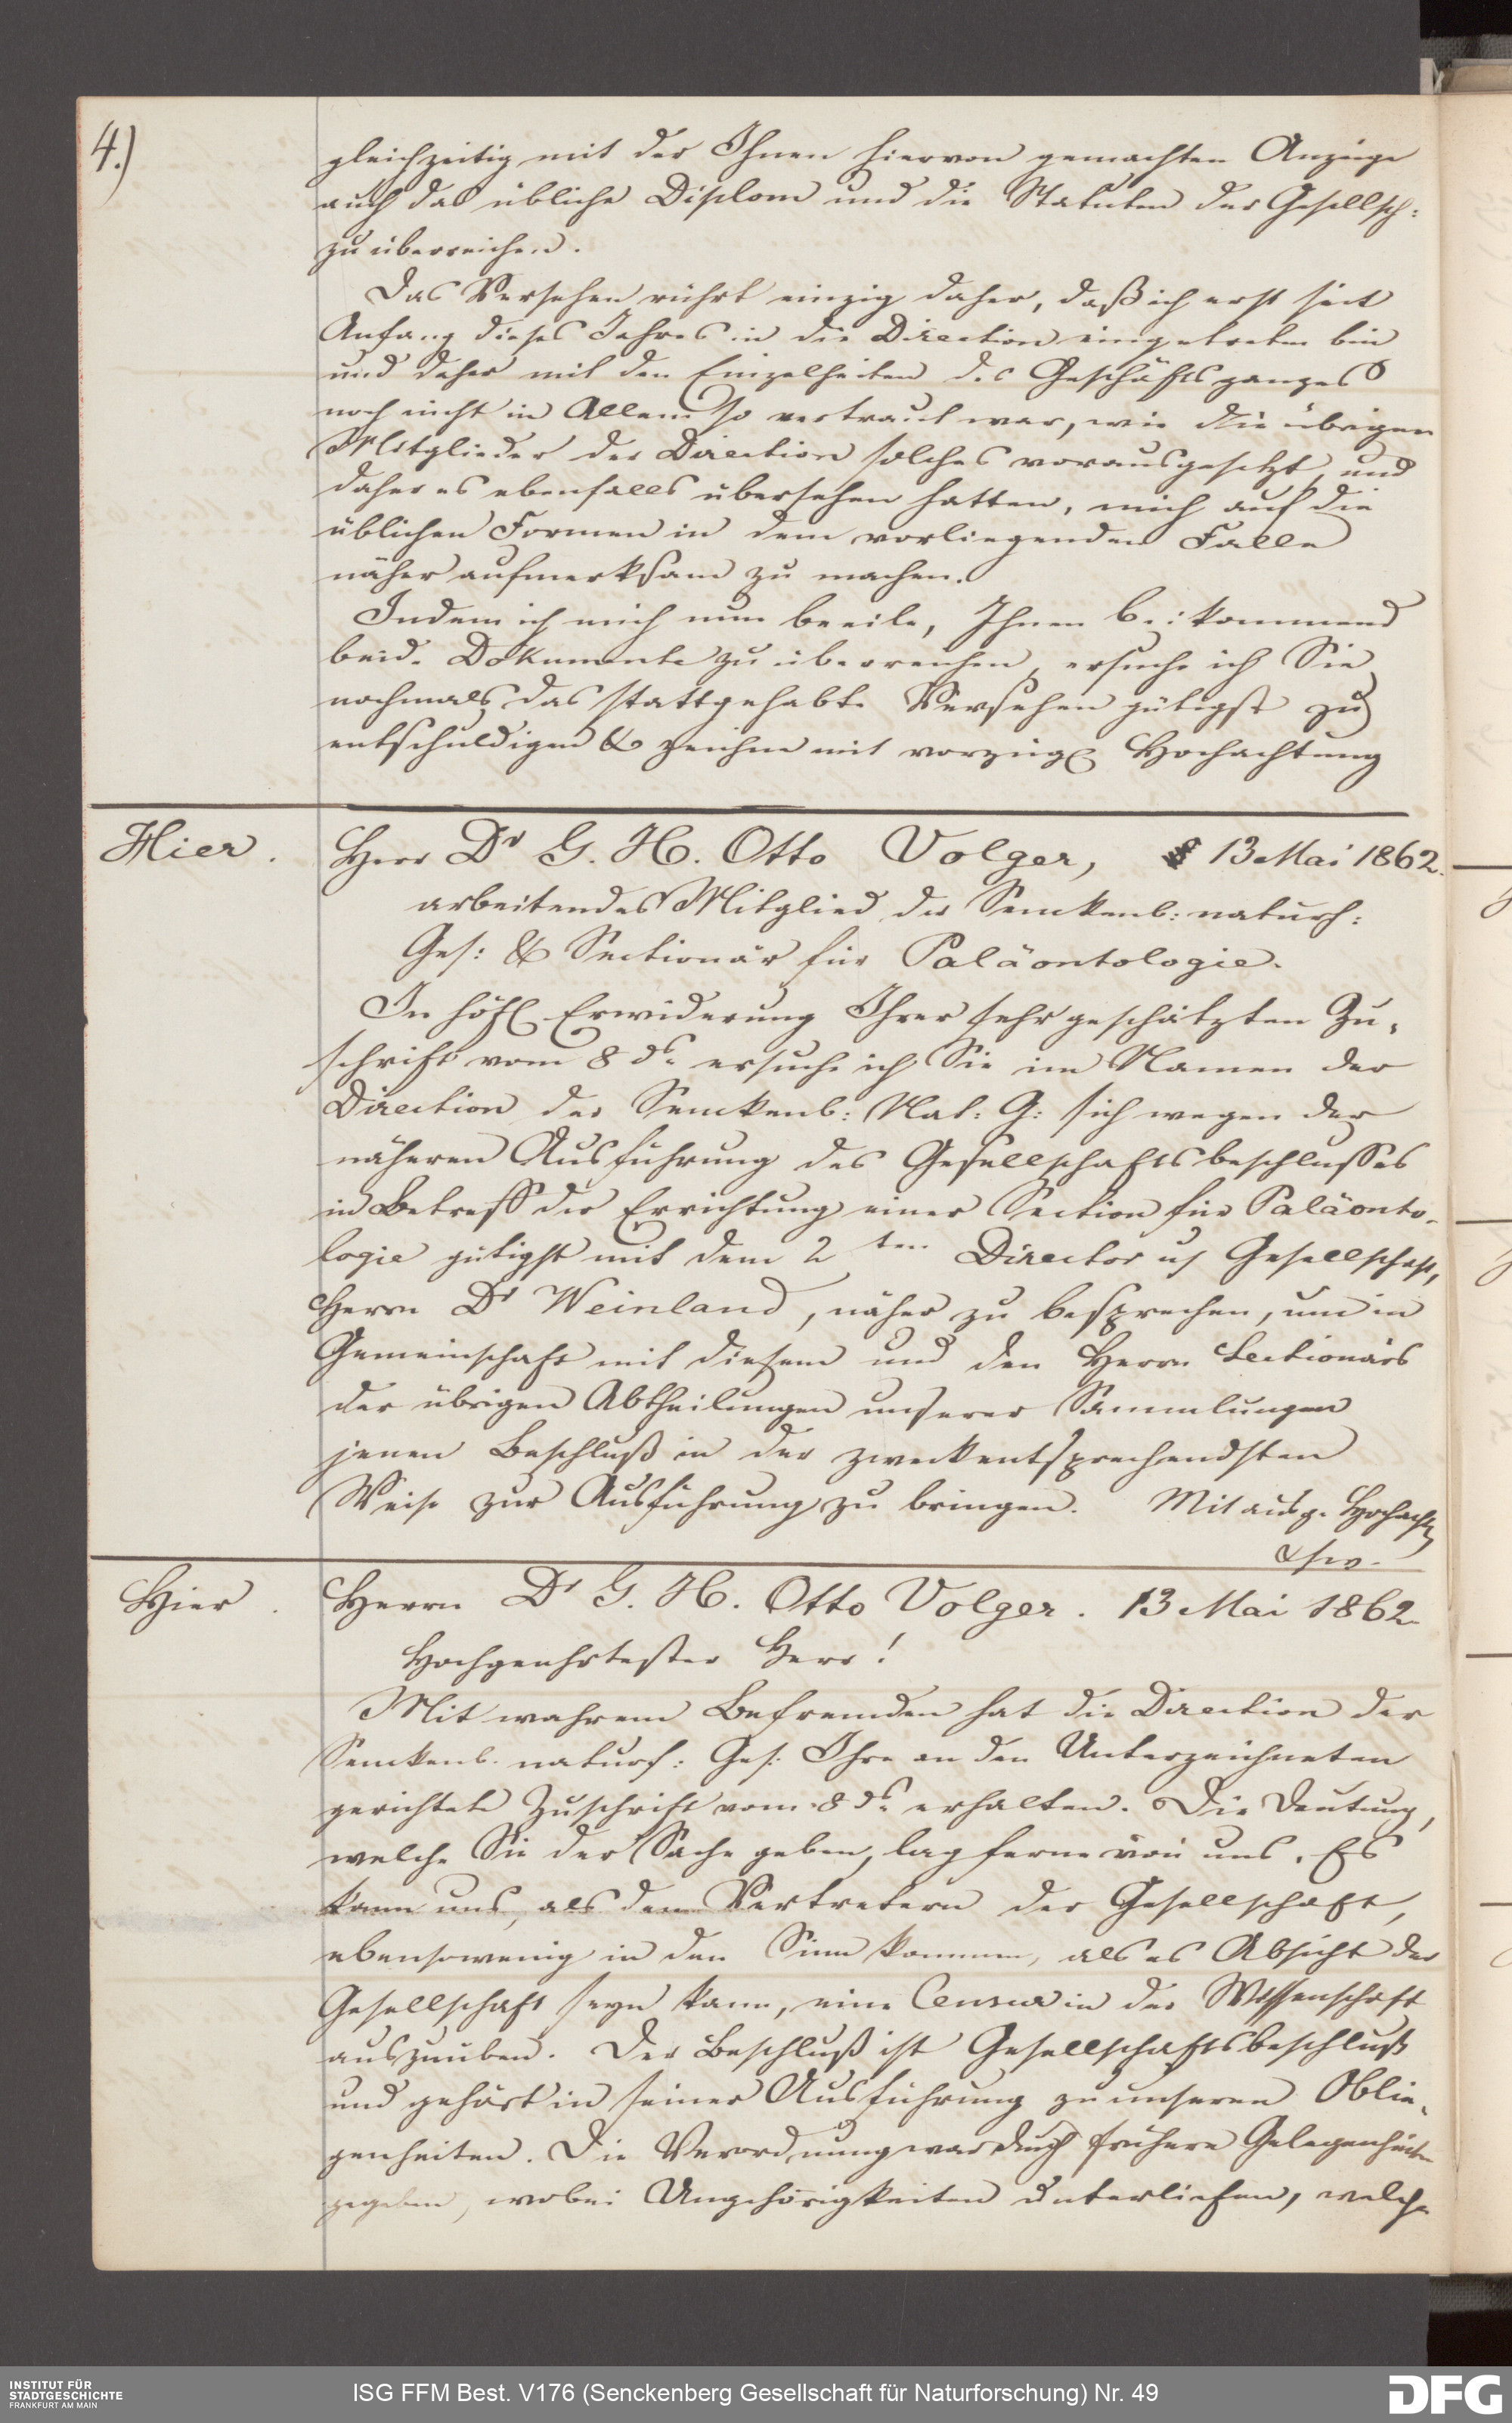 4.)
gleichzeitig mit der Ihnen hiervon gemachten Anzeige
auch das übliche Diplom und die Statuten der Gesellsch:
zu überreichen.
Das Versehen rührt einzig daher, daß ich erst seit
Anfang dieses Jahres in die Direction eingetreten bin
und daher mit den Einzelheiten des Geschäftsganges
noch nicht in Allem so vertraut war, wie die übrigen
Mitglieder der Direction solches vorausgesetzt und
daher es ebenfalls übersehen hatten, mich auf die
üblichen Formen in dem vorliegenden Falle
näher aufmerksam zu machen.
Indem ich mich nun beeile, Ihnen beikommend
beide Dokumente zu überreichen, ersuche ich Sie
nochmals das stattgehabte Versehen gütigst zu
entschuldigen & zeichne mit vorzügl. Hochachtung
Hier. Herr Dr G. H. Otto Volger, 13 Mai 1862.
arbeitendes Mitglied der Senckenb: naturf:
Ges: & Sectionär für Paläontologie.
In höfl. Erwiderung Ihrer sehr geschätzten Zu-
schrift vom 8 ds. ersuche ich Sie im Namen der
Direction der Senckenb: Nat: G: sich wegen der
näheren Ausführung des Gesellschaftsbeschlusses
in Betreff der Errichtung einer Section für Paläonto-
logie gütigst mit dem 2ten Director us Gesellschaft,
Herrn Dr Weinland, näher zu besprechen, um in
Gemeinschaft mit diesem und den Herrn Sectionärs
der übrigen Abtheilungen unserer Sammlungen
jenen Beschluß in der zweckentsprechendsten
Weise zur Ausführung zu bringen. Mit ausg. Hochacht
Hier. Herrn Dr G. H. Otto Volger. 13 Mai 1862.
Hochgeehrtester Herr!
Mit wahrem Befremden hat die Direction der
Senckenb. naturf: Ges: Ihre an den Unterzeichneten
gerichtete Zuschrift vom 8 ds. erhalten. Die Deutung,
welche Sie der Sache geben, lag ferne von uns. Es
kann uns, als den Vertretern der Gesellschaft,
ebensowenig in den Sinn kommen, als es Absicht der
Gesellschaft seyn kann, eine Censur in der Wissenschaft
auszuüben. Der Beschluß ist Gesellschaftsbeschluß
und gehört in seiner Ausführung zu unseren Oblie-
genheiten. Die Verordnung war durch frühere Gelegenheiten
gegeben, wobei Ungehörigkeiten unterliefen, welche
INSTITUT FÜR
STADTGESCHICHTE
FRANKFURT AM MAIN
ISG FFM Best. V176 (Senckenberg Gesellschaft für Naturforschung) Nr. 49
DFG